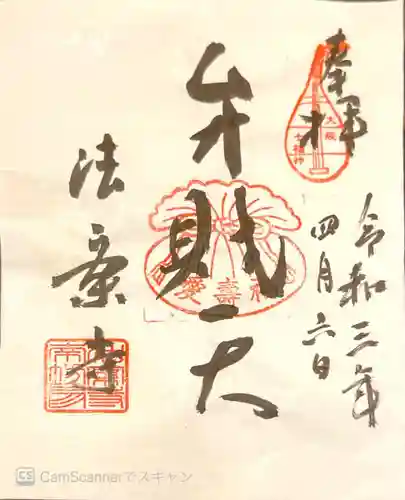 奉拝
令和三年
四月六日
弁財天
法案寺
大阪
七福神
愛壽福
CamScannerでスキャン